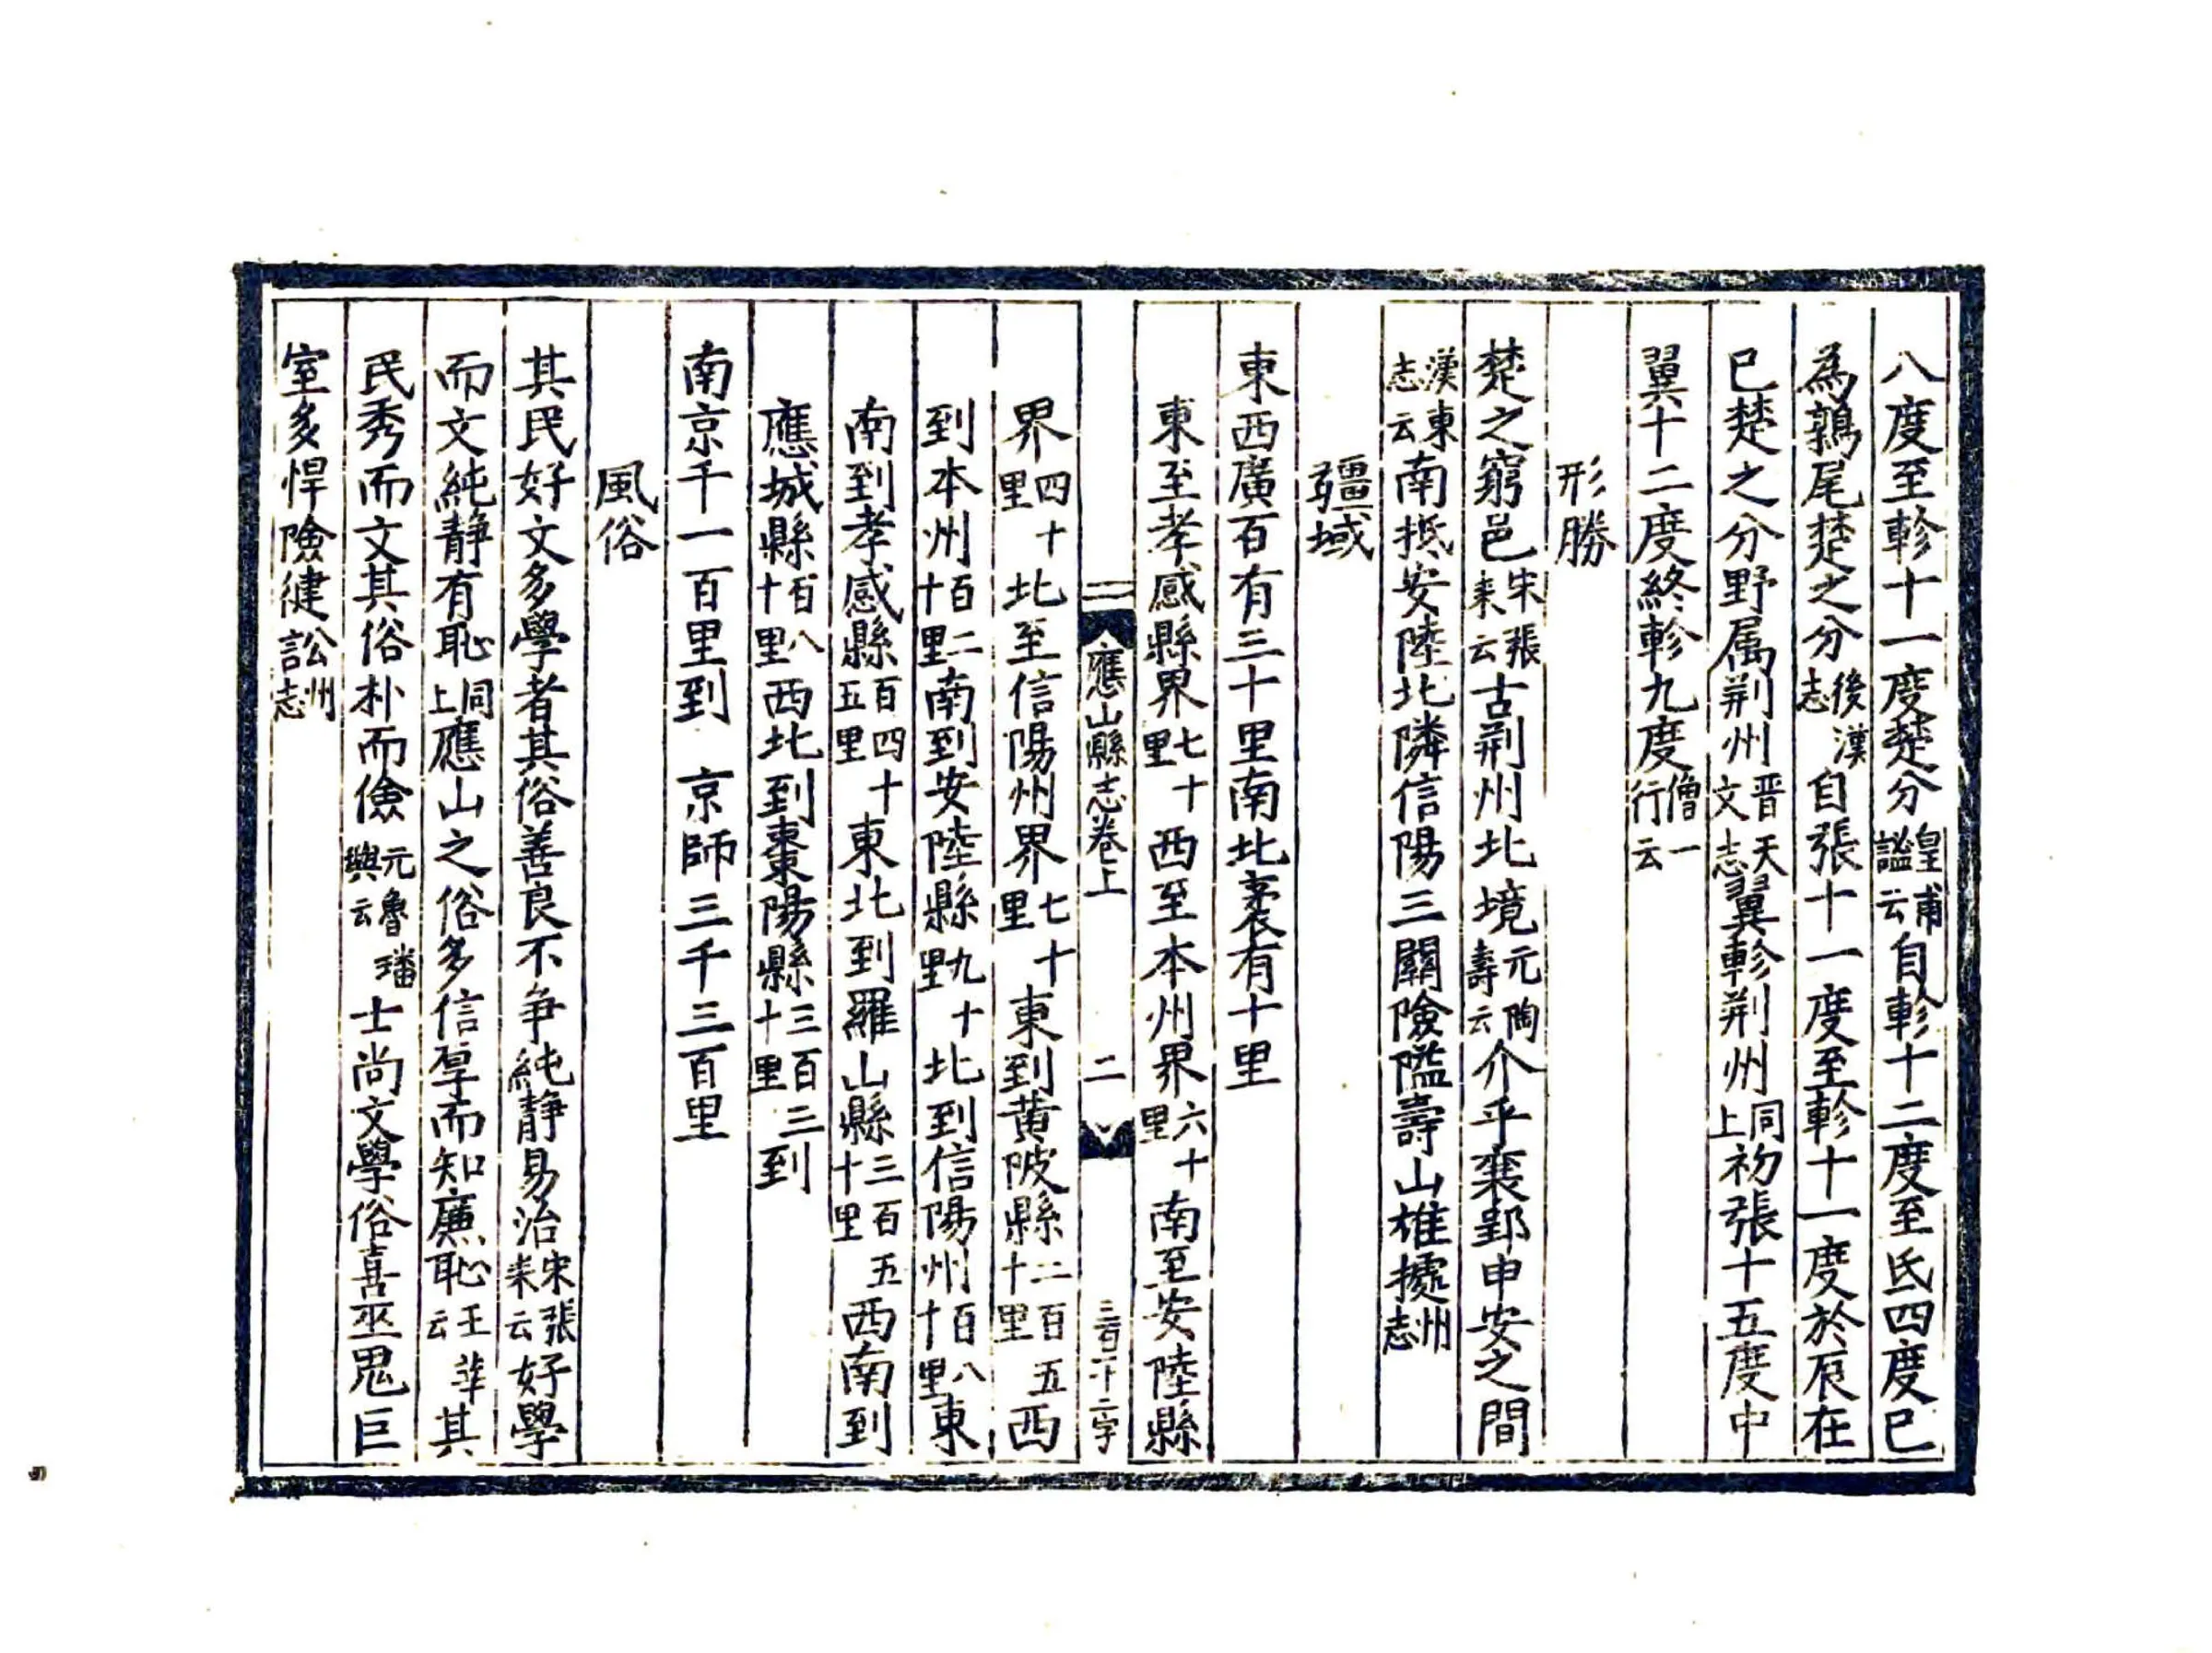 八度至軫十一度楚分皇甫謐云自軫十二度至氐四度巳
為鶉尾楚之分後漢志自張十一度至軫十一度於辰在
巳楚之分野属荆州晋天文志翼軫荆州同上初張十五度中
翼十二度終軫九度僧一行云
形勝
楚之窮邑宋張耒云古荆州北境元陶壽云介乎襄郢申安之間
漢東志云南抵安陸北隣信陽三關險隘壽山雄攄州志
疆域
東西廣百有三十里南北袤有十里
東至孝感縣界七十里西至本州界六十里南至安陸縣
應山縣志卷上 二 三百二十二字
界四十里北至信陽州界七十里東到黄陂縣二百五十里西
到本州百二十里南到安陸縣九十里北到信陽州百八十里東
南到孝感縣百四十五里東北到羅山縣三百五十里西南到
應城縣百八十里西北到棗陽縣三百三十里到
南京千一百里到 京師三千三百里
風俗
其民好文多學者其俗善良不争純静易治宋張耒云好學
而文純静有恥同上應山之俗多信厚而知亷恥王華云其
民秀而文其俗朴而儉元魯璠興云士尚文學俗喜巫鬼巨
室多悍險健訟州志